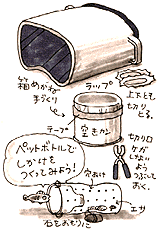 箱めがね
手づくり
ラップ
上下とも
切り
とる。
テープ
空きカン
切り口
ケガ
しない
よう
つぶして
おく。
ペットボトルで
しかけを
つくってみよう!
穴あけ
エサ
石をおもりに